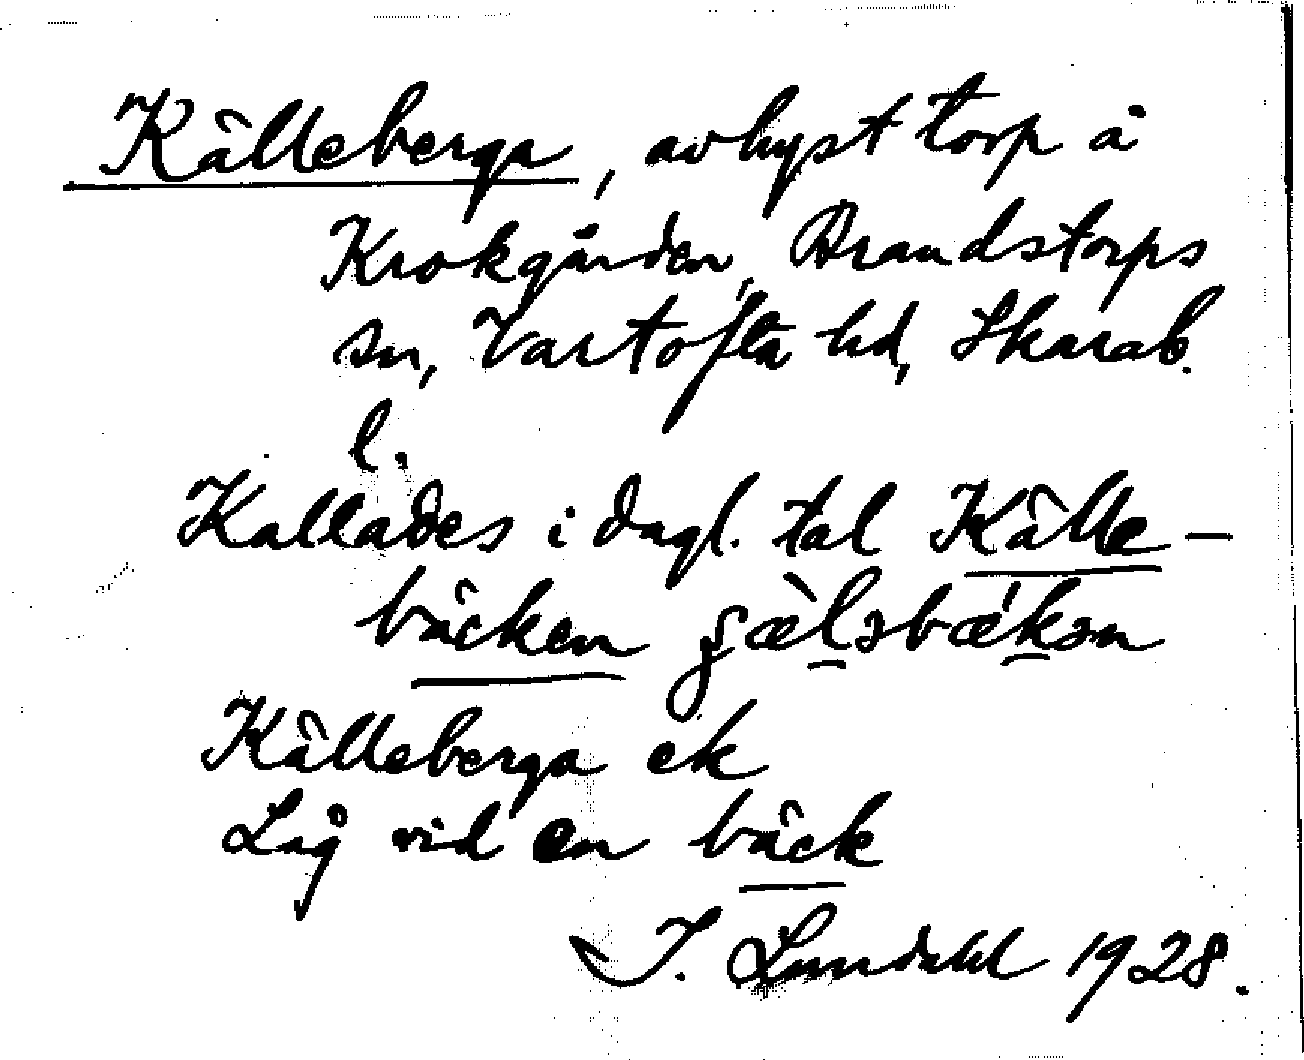 Källeberga, avhyst torp å
Krokgården, Brandstorps
sn, Vartofta hd, Skarab.
l.
Kallades i dagl. tal Källe-
bäcken
Källeberga ek
Låg vid en bäck
I. Lundahl 1928.